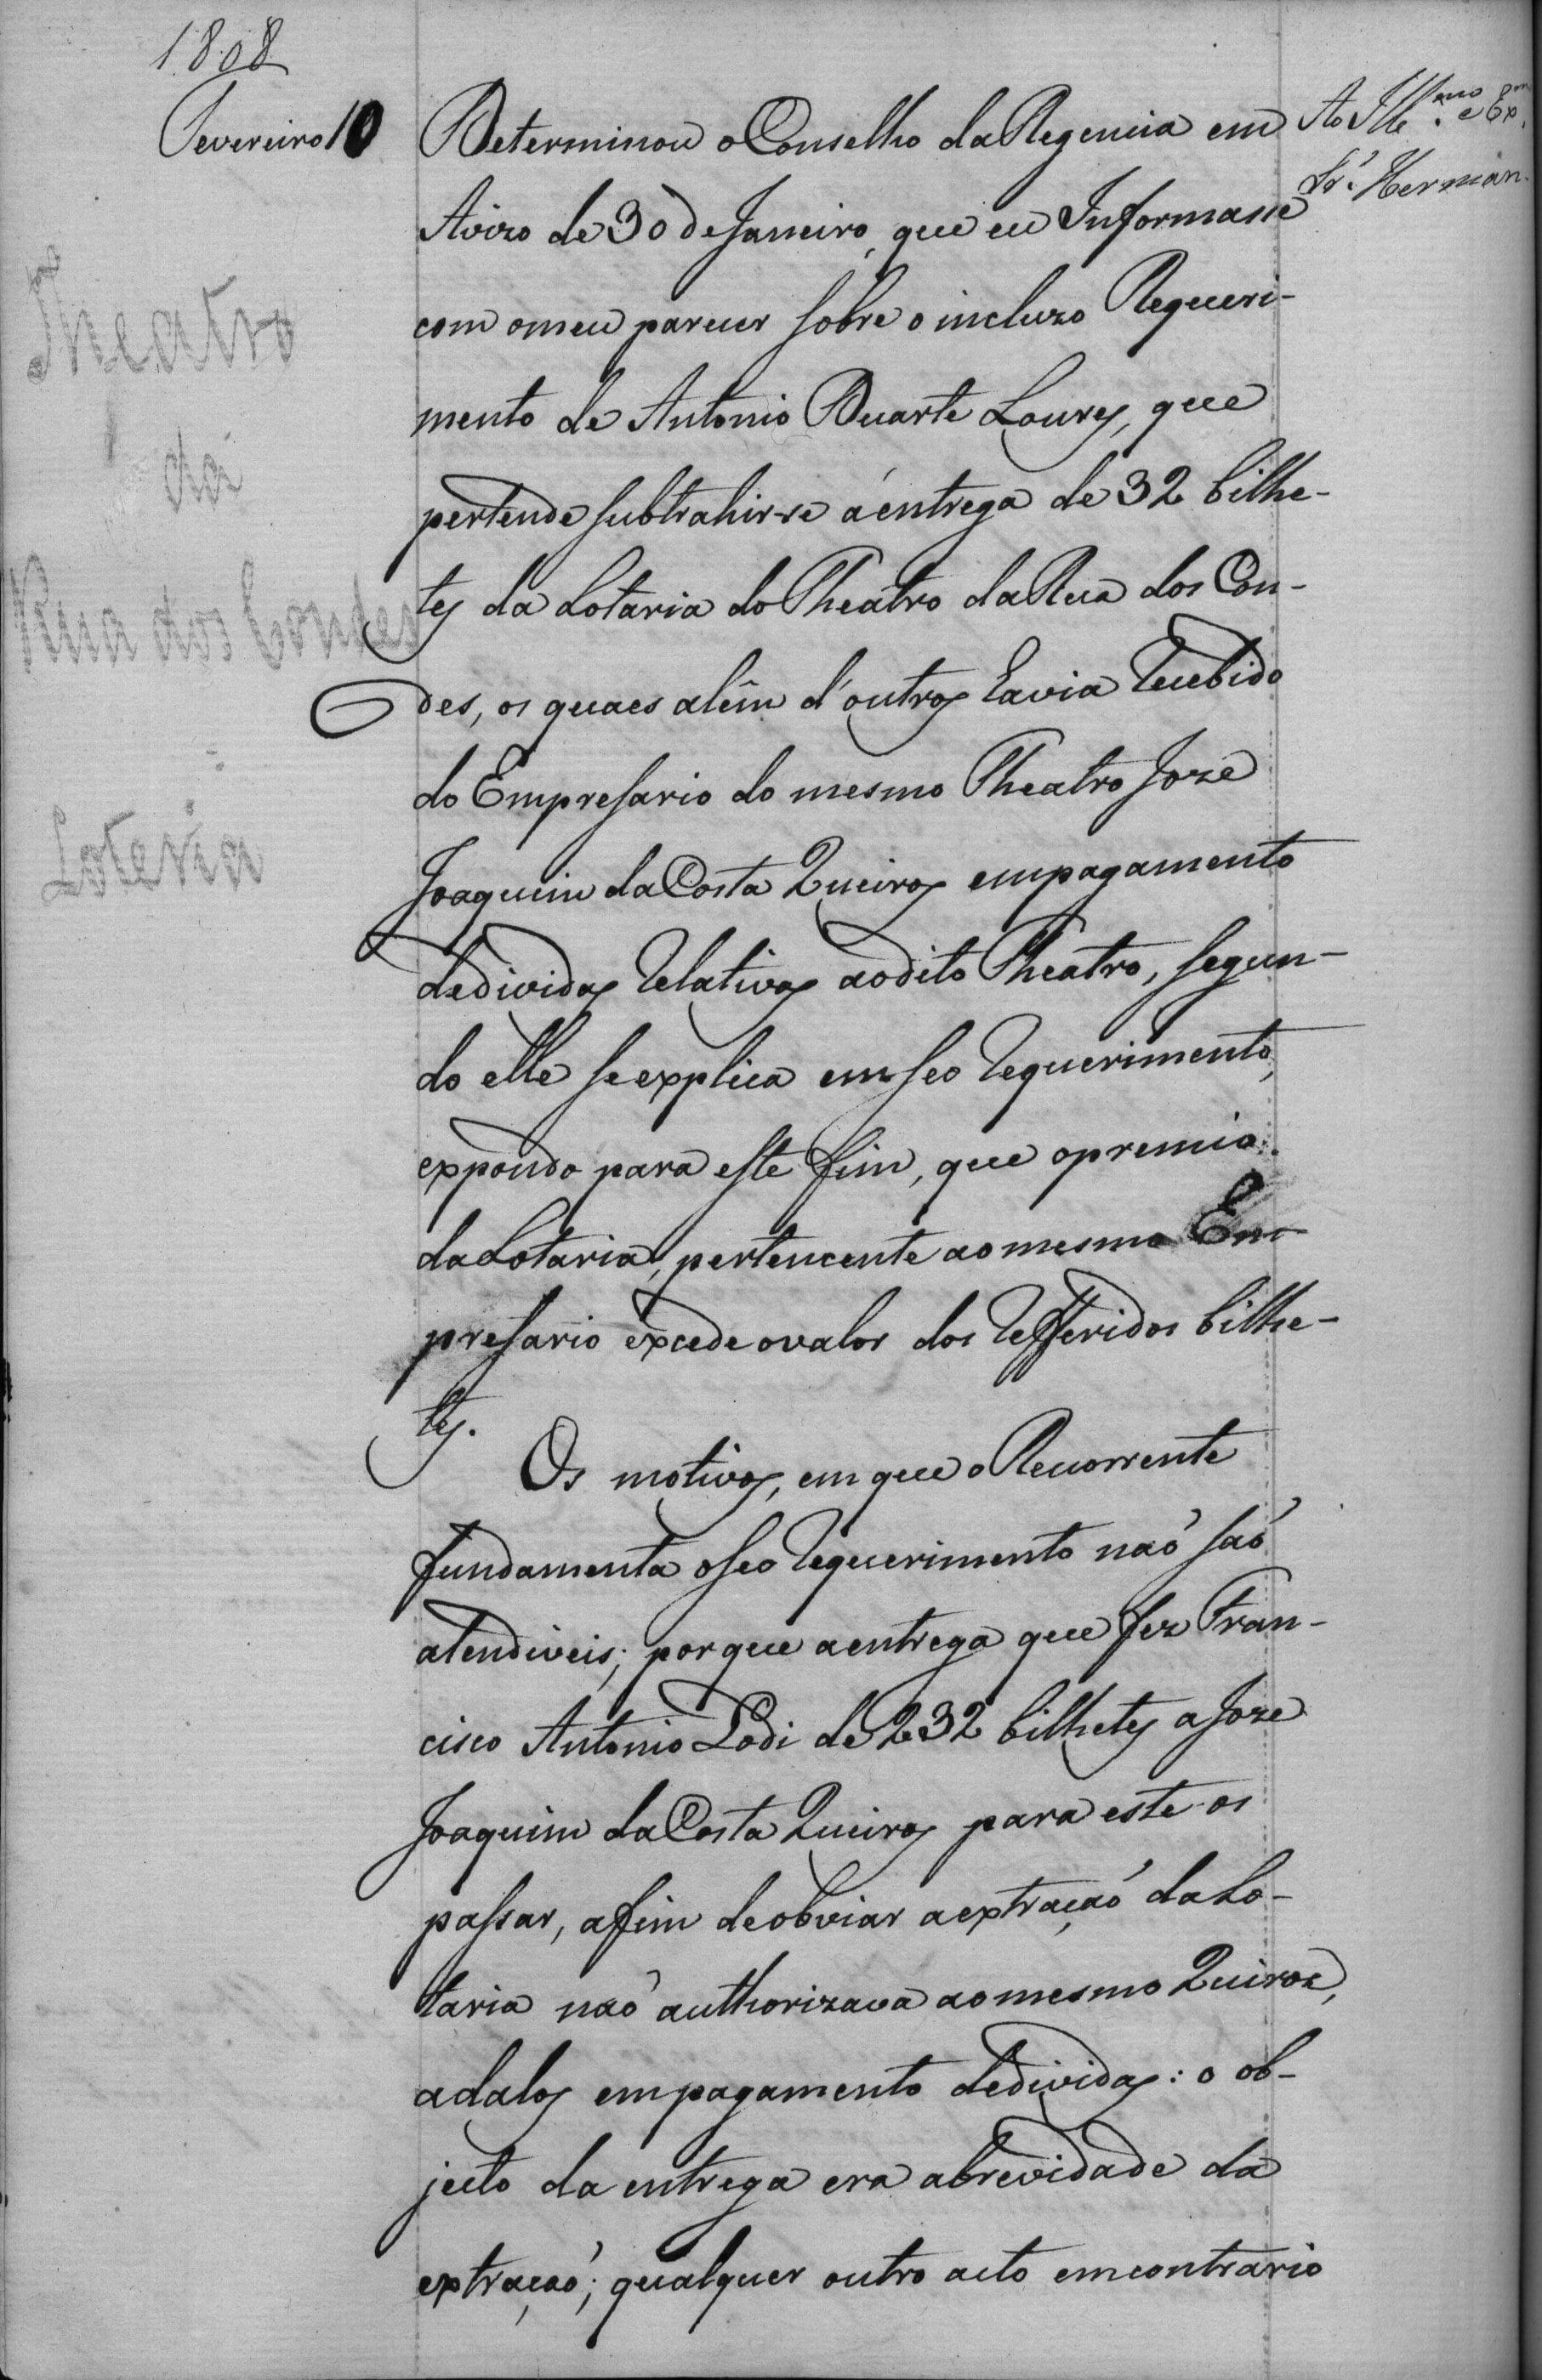 1808
Fevereiro 10
Ao Illmo. e Exm.
Sr. Herman.
Theatro
da
Rua dos Condes
Loteria
Determinou o Conselho da Regencia em
Avizo de 30 de Janeiro, que eu Informasse
com o meu parecer sobre o incluzo Requeri-
mento de Antonio Duarte Loures, que
pertende subtrahir-se á entrega de 32 bilhe-
tes da Lotaria do Theatro da Rua dos Con-
des, os quaes alêm d'outros havia recebido
do Empresario do mesmo Theatro Joze
Joaquim da Costa Queiros em pagamento
de dividas relativas ao dito Theatro, segun-
do elle se explica em seo requerimento,
expondo para este fim, que o premio
da Lotaria, pertencente ao mesmo Em-
presario excede o valor dos refferidos bilhe-
tes.
Os motivos, em que o Recorrente
fundamenta o seo requerimento naõ saõ
atendiveis; porque a entrega que fez Fran-
cisco Antonio Lodi de 232 bilhetes a Joze
Joaquim da Costa Queiros para este os
passar, a fim de obviar a extraçaõ da Lo-
taria naõ authorizava ao mesmo Quiroz,
a dalos em pagamento de dividas: o ob-
jecto da entrega era a brevidade da
extraçaõ; qualquer outro acto em contrario